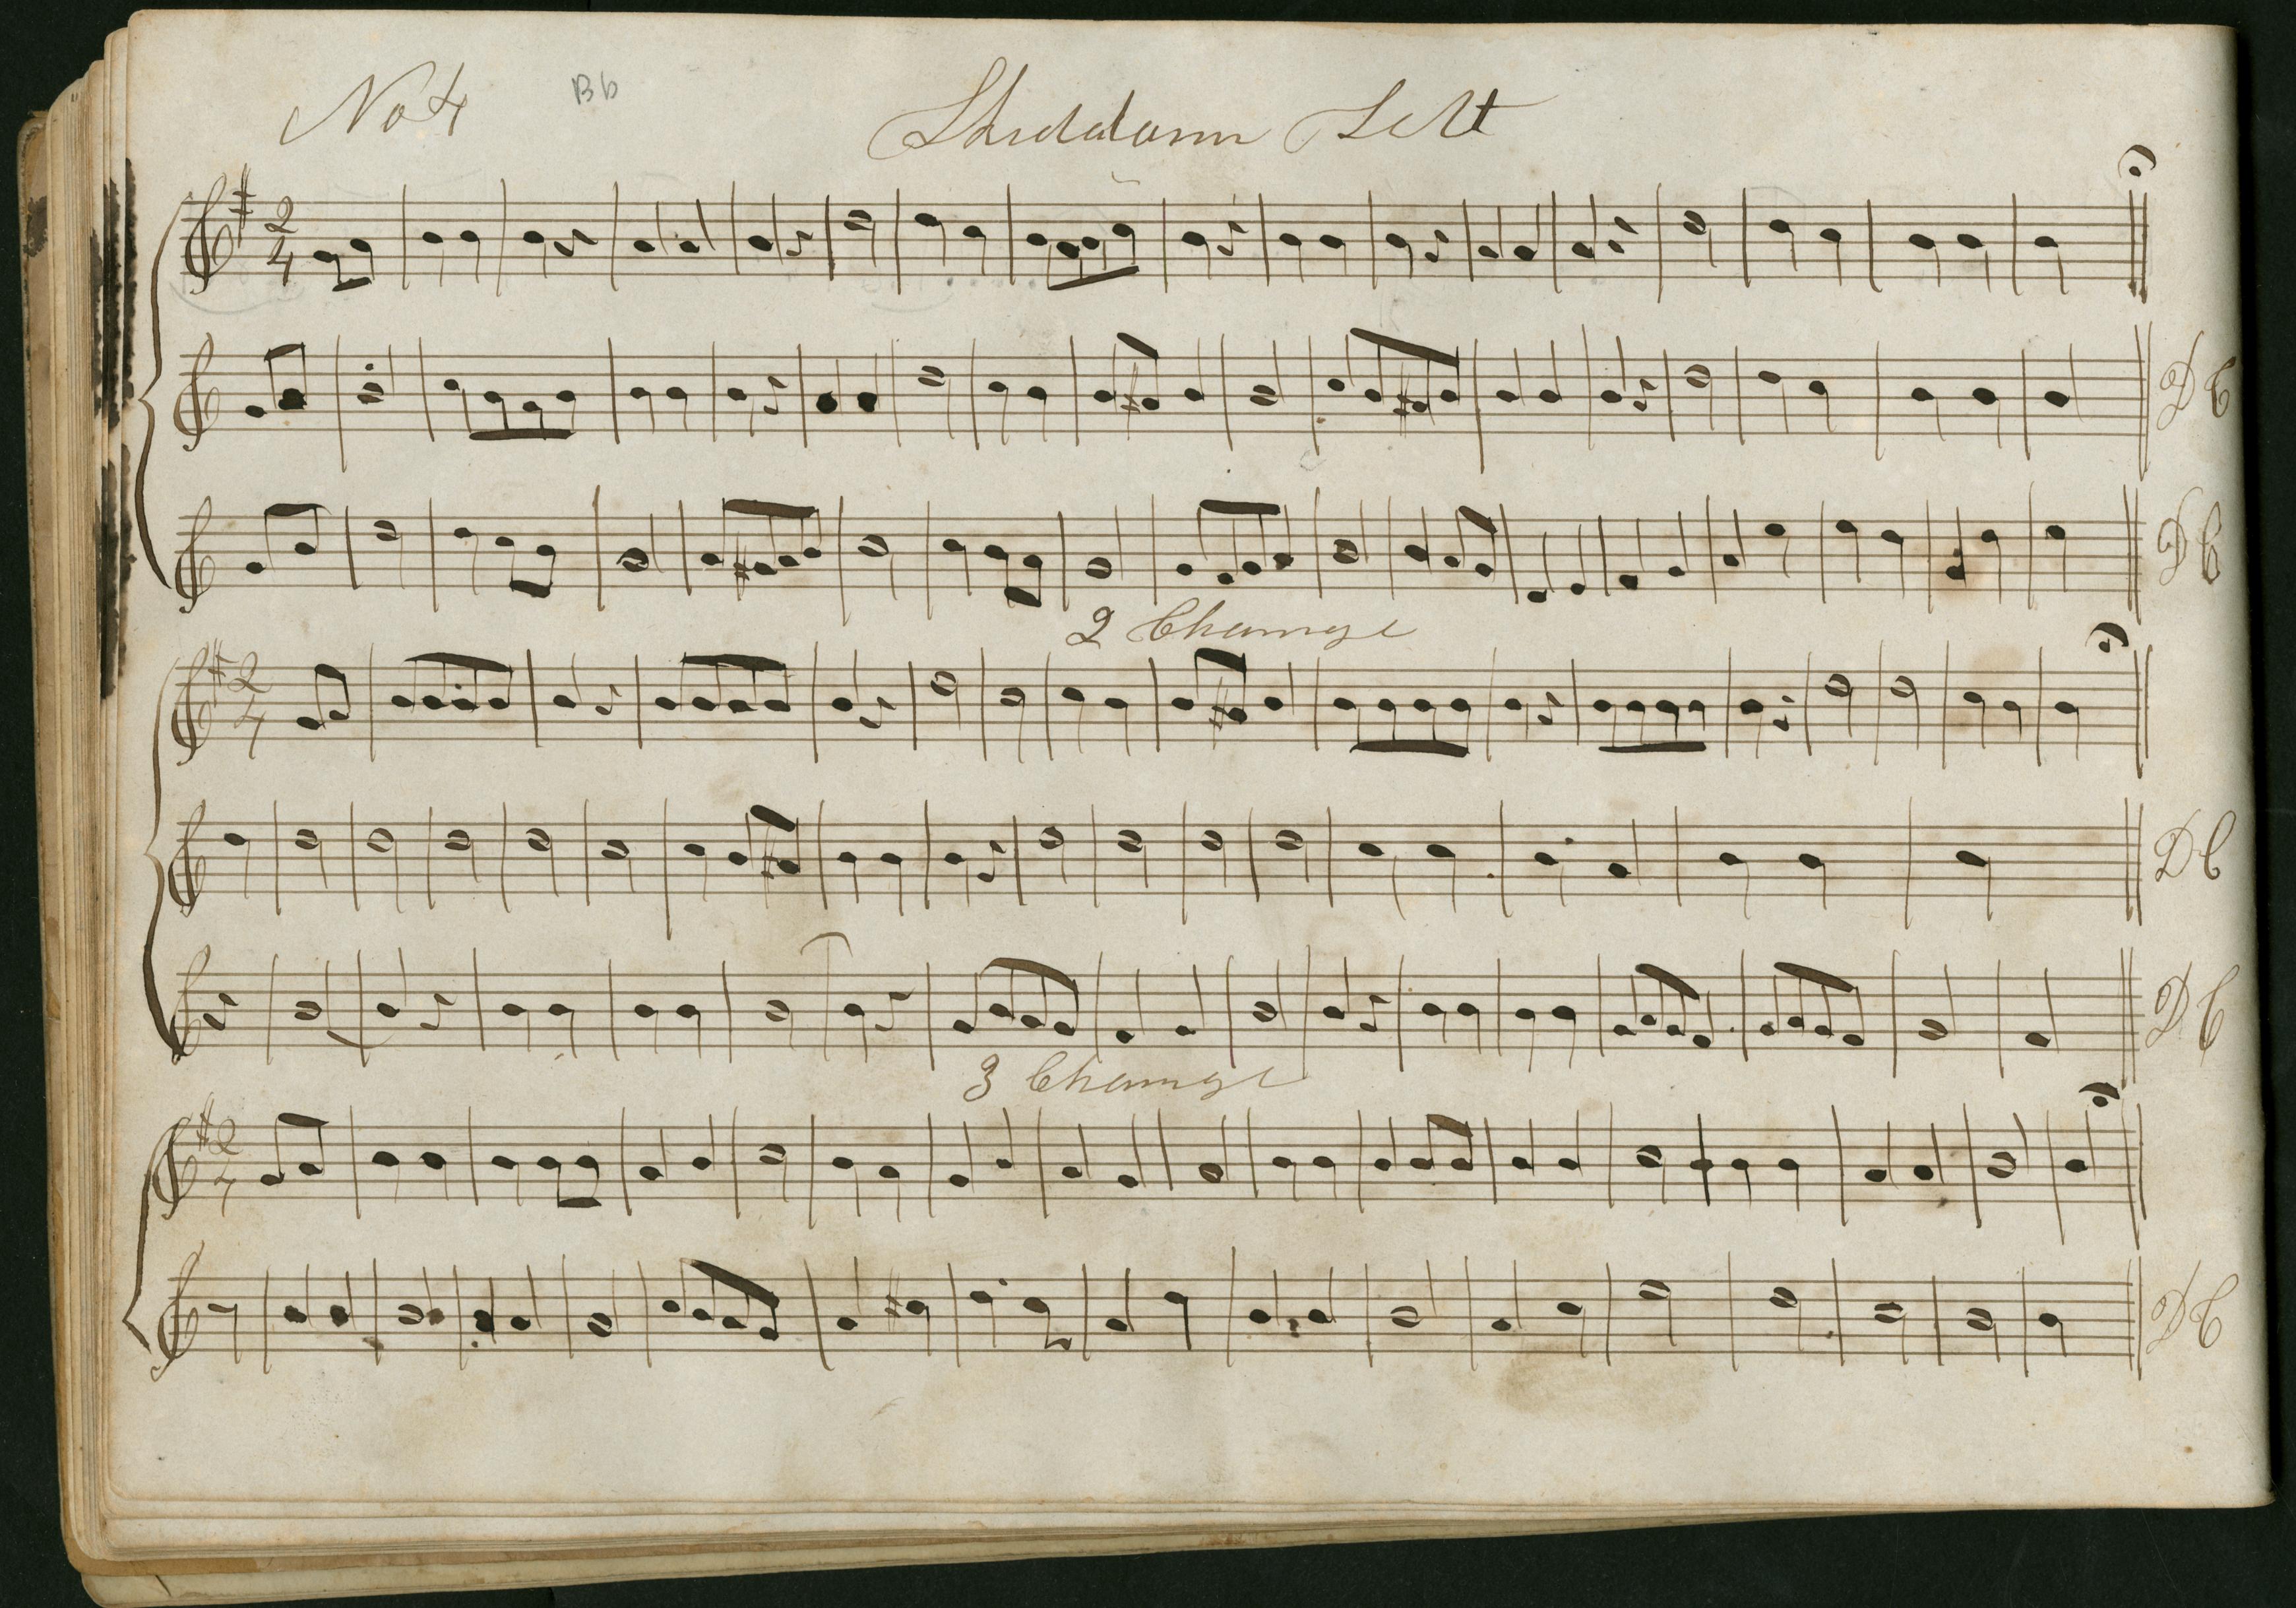 No 4 Bb Sett
2/4
D C
D C
2 Change
2/4
D C
D C
3 Change
2/4
D C